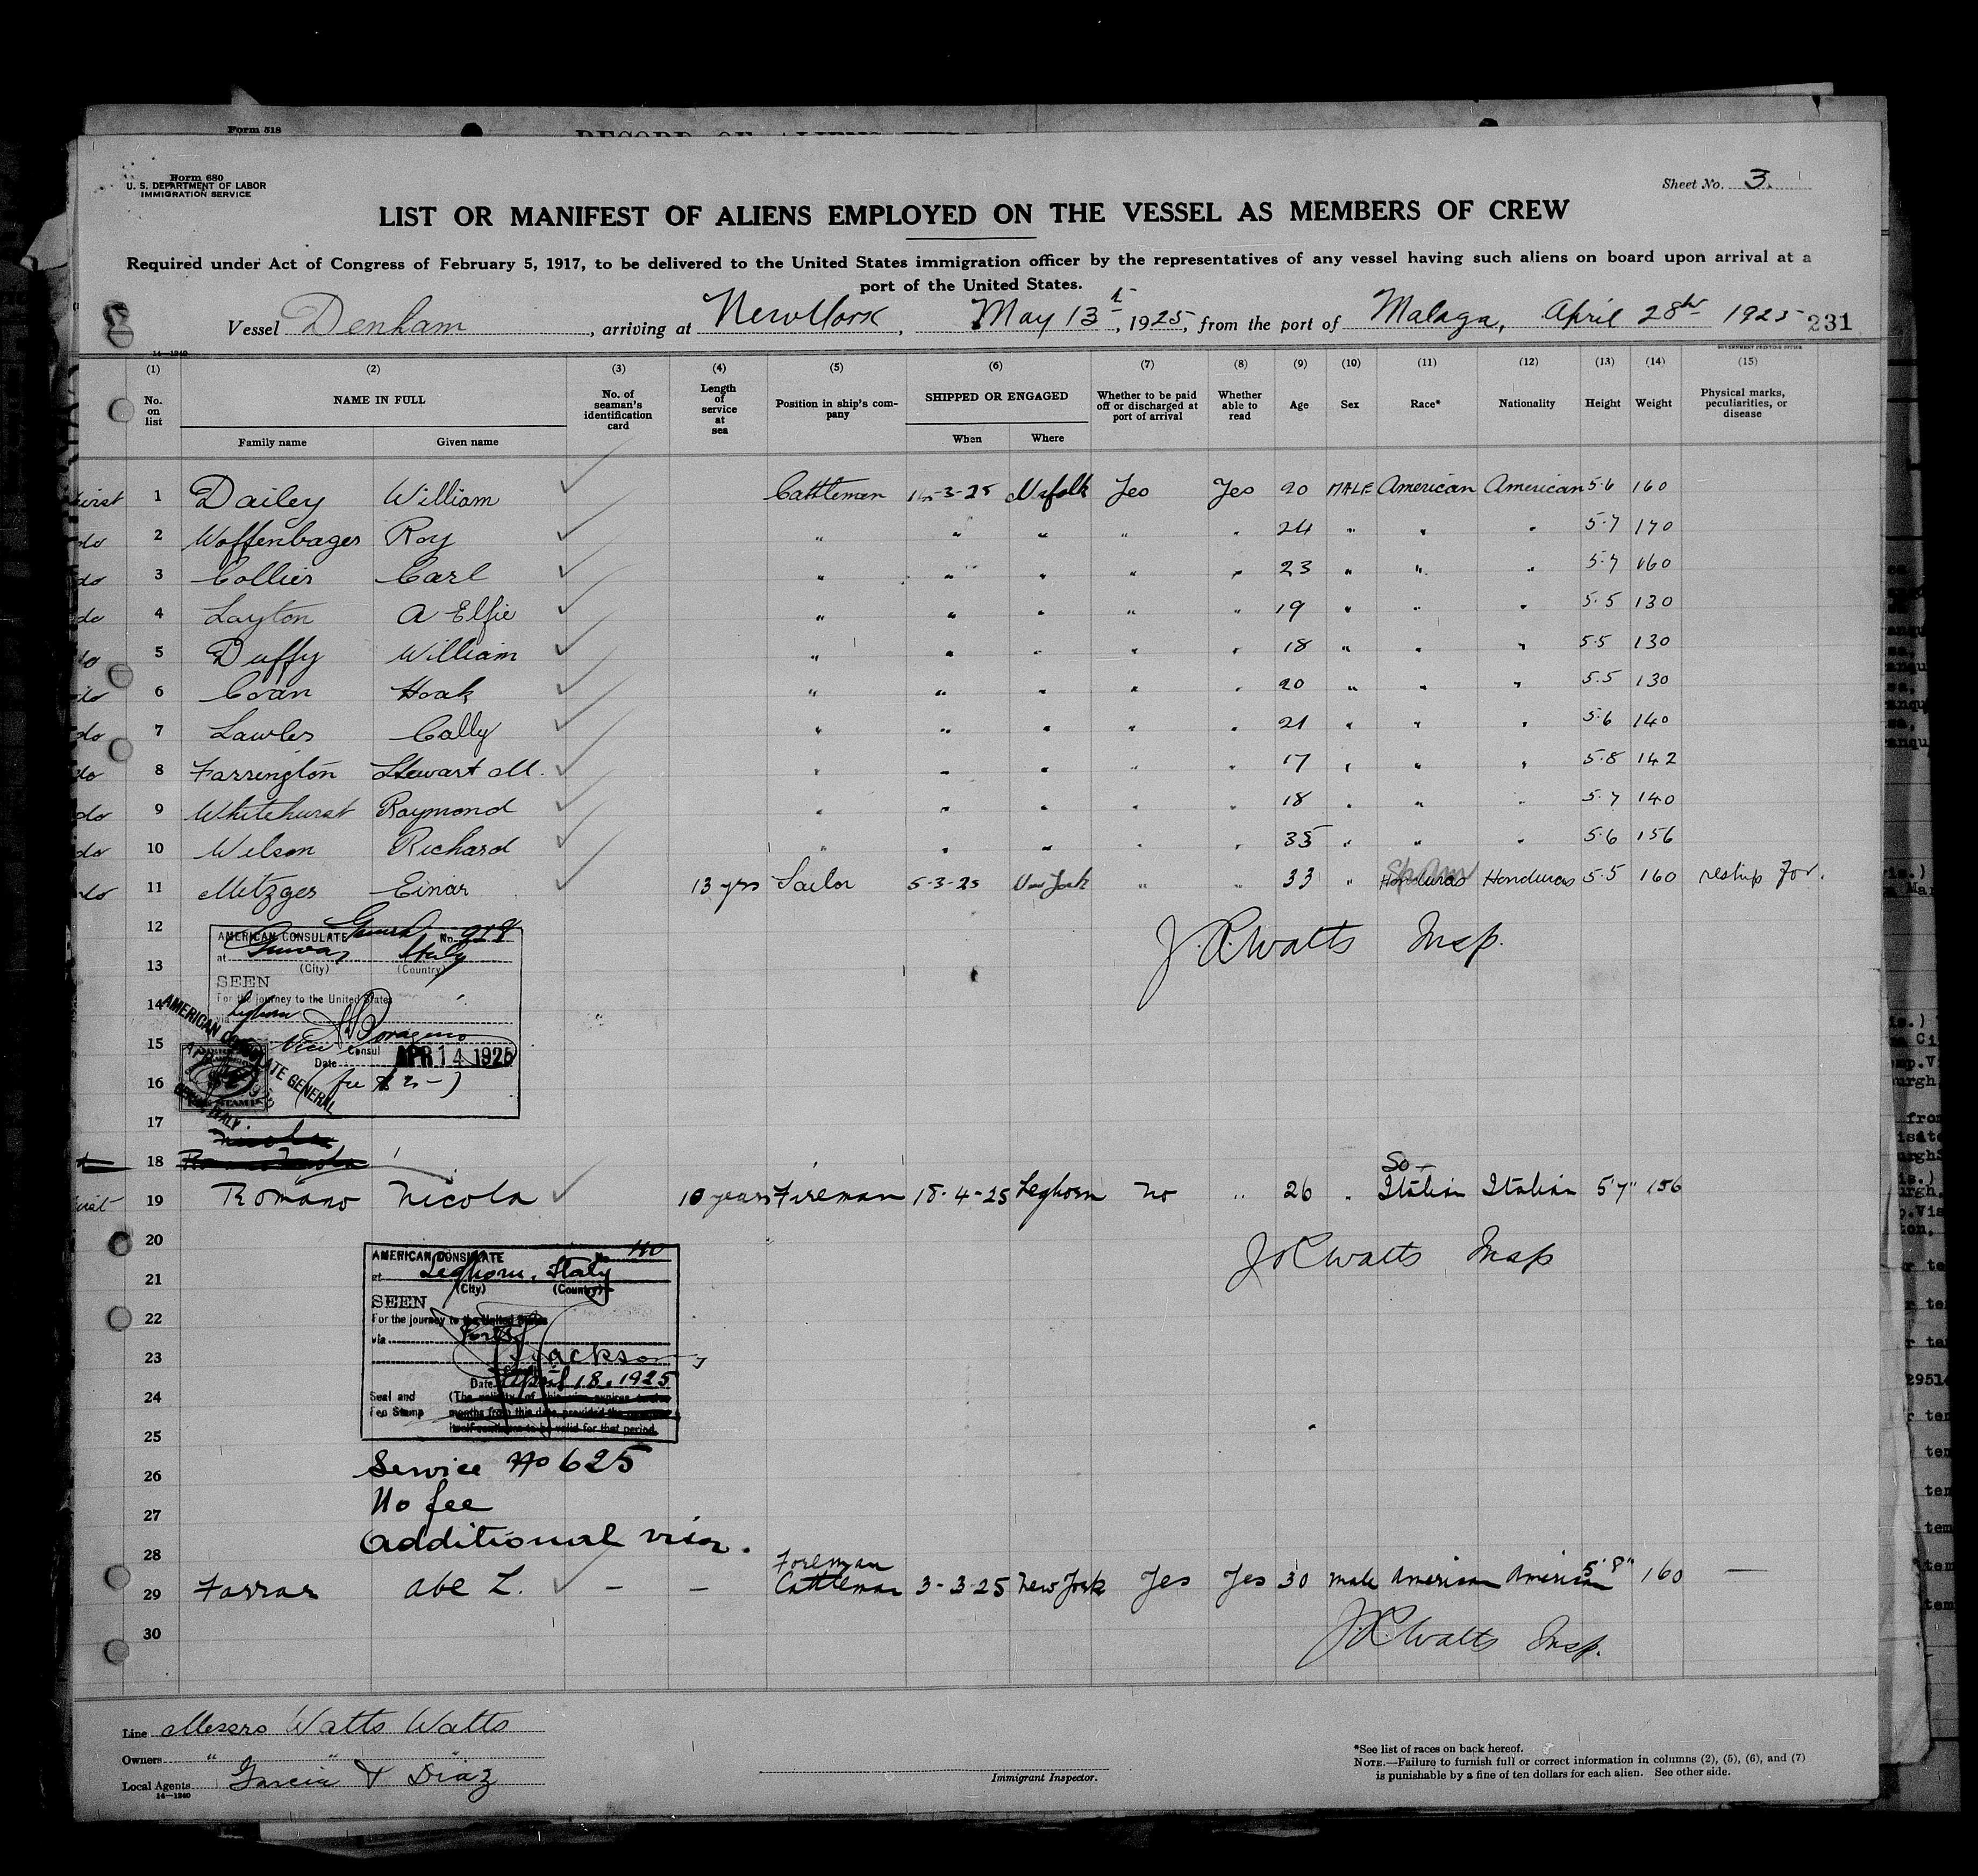 Form 518
Form 680
U. S. DEPARTMENT OF LABOR
IMMIGRATION SERVICE
Sheet No. 3.
LIST OR MANIFEST OF ALIENS EMPLOYED ON THE VESSEL AS MEMBERS OF CREW
Required under Act of Congress of February 5, 1917, to be delivered to the United States immigration officer by the representatives of any vessel having such aliens on board upon arrival at a
port of the United States.
Vessel Denham, arriving at New York, May 13th, 1925, from the port of Malaga, April 28th 1925 231
14—1240
GOVERNMENT PRINTING OFFICE
(1) (2) (3) (4) (5) (6) (7) (8) (9) (10) (11) (12) (13) (14) (15)
No. on list NAME IN FULL Family name Given name No. of seaman's identification card Length of service at sea Position in ship's company SHIPPED OR ENGAGED When Where Whether to be paid off or discharged at port of arrival Whether able to read Age Sex Race* Nationality Height Weight Physical marks, peculiarities, or disease
first 1 Dailey William Cattleman -3-25 Norfolk Yes Yes 20 MALE American American 5.6 160
do 2 Woffenbager Roy " " " " " 24 " " " 5.7 170
do 3 Collier Carl " " " " " 23 " " " 5.7 160
do 4 Layton A Elfie " " " " " 19 " " " 5.5 130
do 5 Duffy William " " " " " 18 " " " 5.5 130
do 6 Coran Hoak " " " " " 20 " " " 5.5 130
do 7 Lawler Cally " " " " " 21 " " " 5.6 140
do 8 Farrington Stewart M. " " " " " 17 " " " 5.8 142
do 9 Whitehurst Raymond " " " " " 18 " " " 5.7 140
do 10 Wilson Richard " " " " " 35 " " " 5.6 156
do 11 Metzger Einar 13 yrs Sailor 5-3-25 New York " " 33 " Honduras Honduras 5.5 160 reship for.
12
J. R. Watts Insp.
AMERICAN CONSULATE No. 918
at Genoa, Italy
(City) (Country)
13
SEEN
For the journey to the United States
14
via Leghorn
15
Vice Consul
Date APR 14 1925
16
(fee $2-)
AMERICAN CONSULATE GENERAL
GENOA, ITALY
17
18
19 Romano Nicola 10 years Fireman 18-4-25 Leghorn No " 26 " So- Italian Italian 5'7" 156
20
J R Watts Insp
AMERICAN CONSULATE No. 140
21
at Leghorn, Italy
(City) (Country)
SEEN
22
For the journey to the United States
via Ports
23
Jackson
Date April 18, 1925
24
Seal and Fee Stamp (The validity of this visa expires twelve
months from this date provided the
25
itself continues to be valid for that period.
26
Service No 625
27
No fee
28
Additional visa.
29 Farrar Abe L. – – Foreman Cattleman 3-3-25 New York Yes Yes 30 male American American 5'8" 160 —
30
J.R. Watts Insp.
Line Messrs Watts Watts
Owners " " "
Local Agents Garcia & Diaz
14—1240
Immigrant Inspector.
*See list of races on back hereof.
NOTE.—Failure to furnish full or correct information in columns (2), (5), (6), and (7)
is punishable by a fine of ten dollars for each alien. See other side.